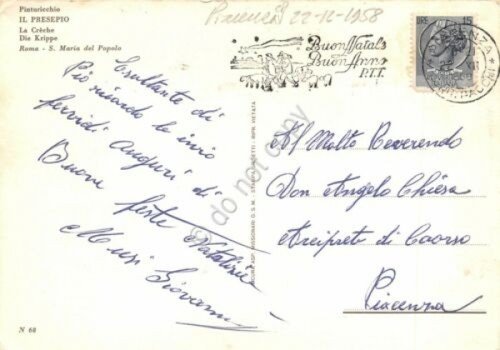 Pinturicchio
IL PRESEPIO
La Crèche
Die Krippe
Roma - S. Maria del Popolo
Piacenza 22-12-1958
Buon Natale
Buon Anno
P.T.T.
LIRE 15
PIACENZA
Esultante di
Più ricordo le invio
fervidi Auguri di
Buone feste Natalizie
Musi Giovanni
Al Molto Reverendo
Don Angelo Chiesa
Arciprete di Caorso
Piacenza
do not copy
N 68